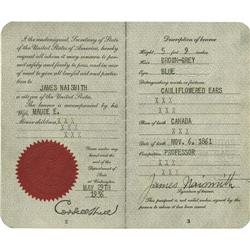 I, the undersigned, Secretary of State
of the United States of America, hereby
request all whom it may concern to per-
mit safely and freely to pass, and in case
of need to give all lawful aid and protec-
tion to
JAMES NAISMITH
a citizen of the United States.
The bearer is accompanied by his
Wife, MAUDE E.
Minor children, XXX
XXX
XXX
Given under my
hand and the
seal of the
Department
of State
at Washington,
MAY 29TH
1936
Cordell Hull
2
Description of bearer
Height 5 feet 9 inches
Hair BROWN-GREY
Eyes BLUE
Distinguishing marks or features:
CAULIFLOWERED EARS
XXX
XXX
Place of birth CANADA
Date of birth NOV. 6, 1861
Occupation PROFESSOR
XXX
James Naismith
Signature of bearer
3